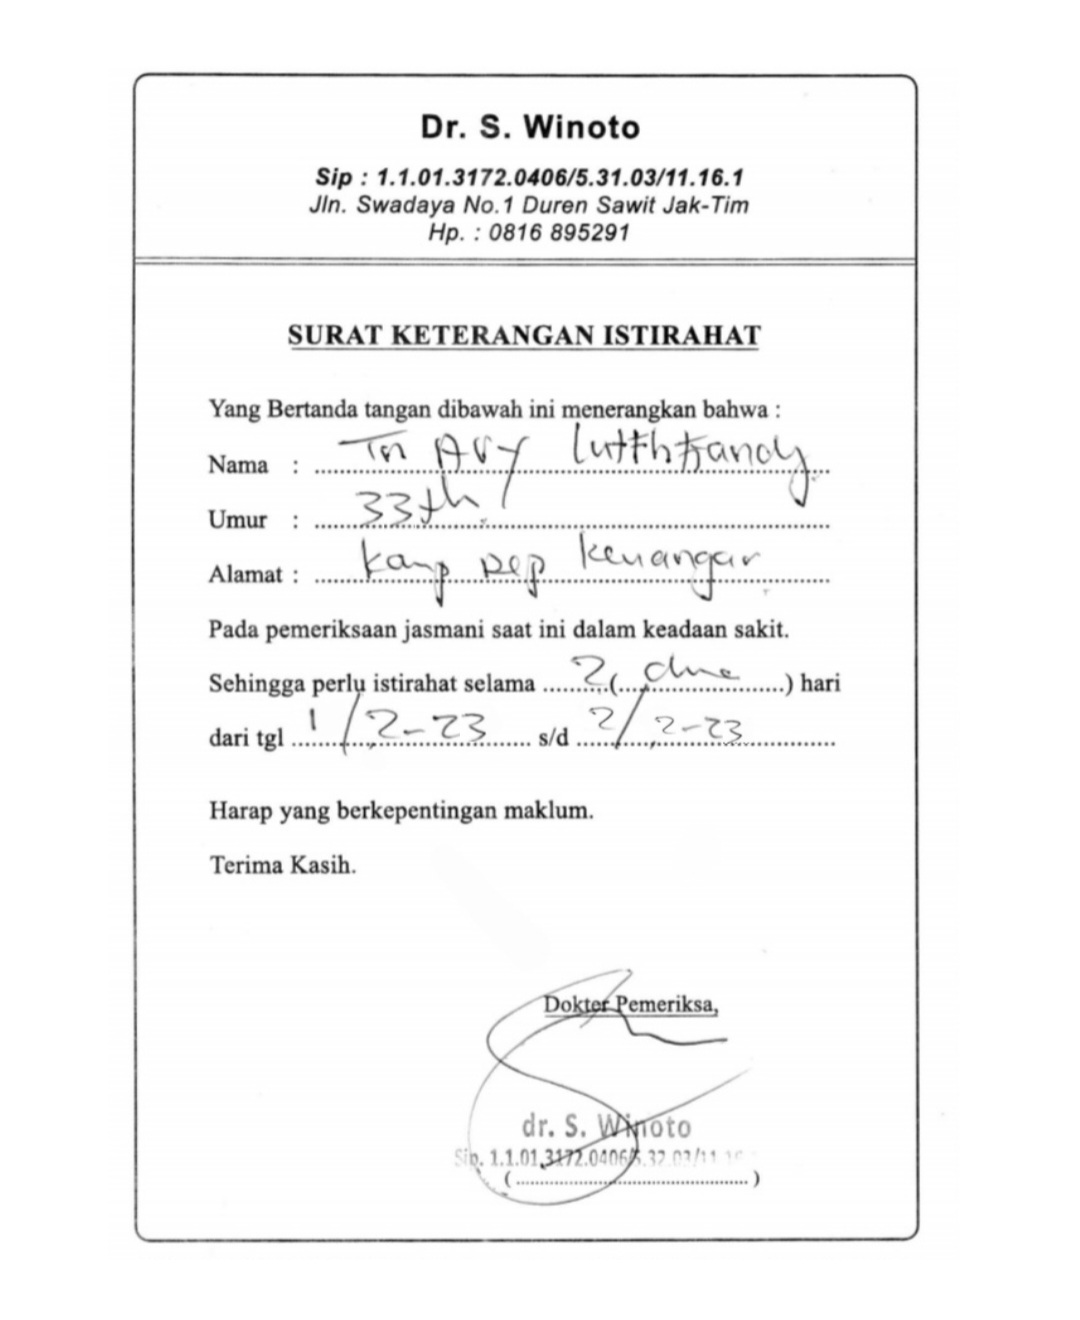 Dr. S. Winoto
Sip : 1.1.01.3172.0406/5.31.03/11.16.1
Jln. Swadaya No.1 Duren Sawit Jak-Tim
Hp. : 0816 895291
SURAT KETERANGAN ISTIRAHAT
Yang Bertanda tangan dibawah ini menerangkan bahwa :
Nama : Tn AVY
Umur : 33th
Alamat : Kamp Dep Keuangan
Pada pemeriksaan jasmani saat ini dalam keadaan sakit.
Sehingga perlu istirahat selama 2 (dua) hari
dari tgl 1/2-23 s/d 2/2-23
Harap yang berkepentingan maklum.
Terima Kasih.
Dokter Pemeriksa,
dr. S. Winoto
Sip. 1.1.01.3172.0406/5.32.03/11